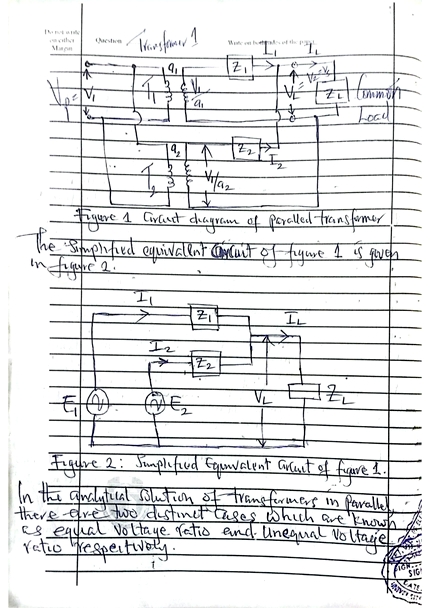 Do not write
on either
Margin
Question
Transformer 1
Write on both sides of the paper
I₁
I_L
Z₁
a₁
T₁
V₁/a₁
Vₚ =
V₁
V_L =
Z_L
Common
Load
a₂
T₂
Z₂
I₂
V₁/a₂
Figure 1 Circuit diagram of parallel transformer
The Simplified equivalent Circuit of figure 1 is given
in figure 2.
I₁
Z₁
I_L
I₂
Z₂
E₁
E₂
V_L
Z_L
Figure 2: Simplified Equivalent Circuit of figure 1.
In the analytical solution of transformers in parallel,
there are two distinct cases which are known
as equal voltage ratio and unequal voltage
ratio respectively.